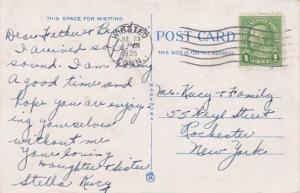 THIS SPACE FOR WRITING
POST CARD
THIS SIDE IS FOR THE ADDRESS
WINSTED
JUL 23
1935
CONN.
1 CENT 1
Dear Father &
I arrived safe
sound. I am
a good time and
hope you are enjoy
ing yourselves
without me
Your loving
Daughter & Sister
Stella Kucy
Mr. Kucy & Family
55 Street
Rochester
New York